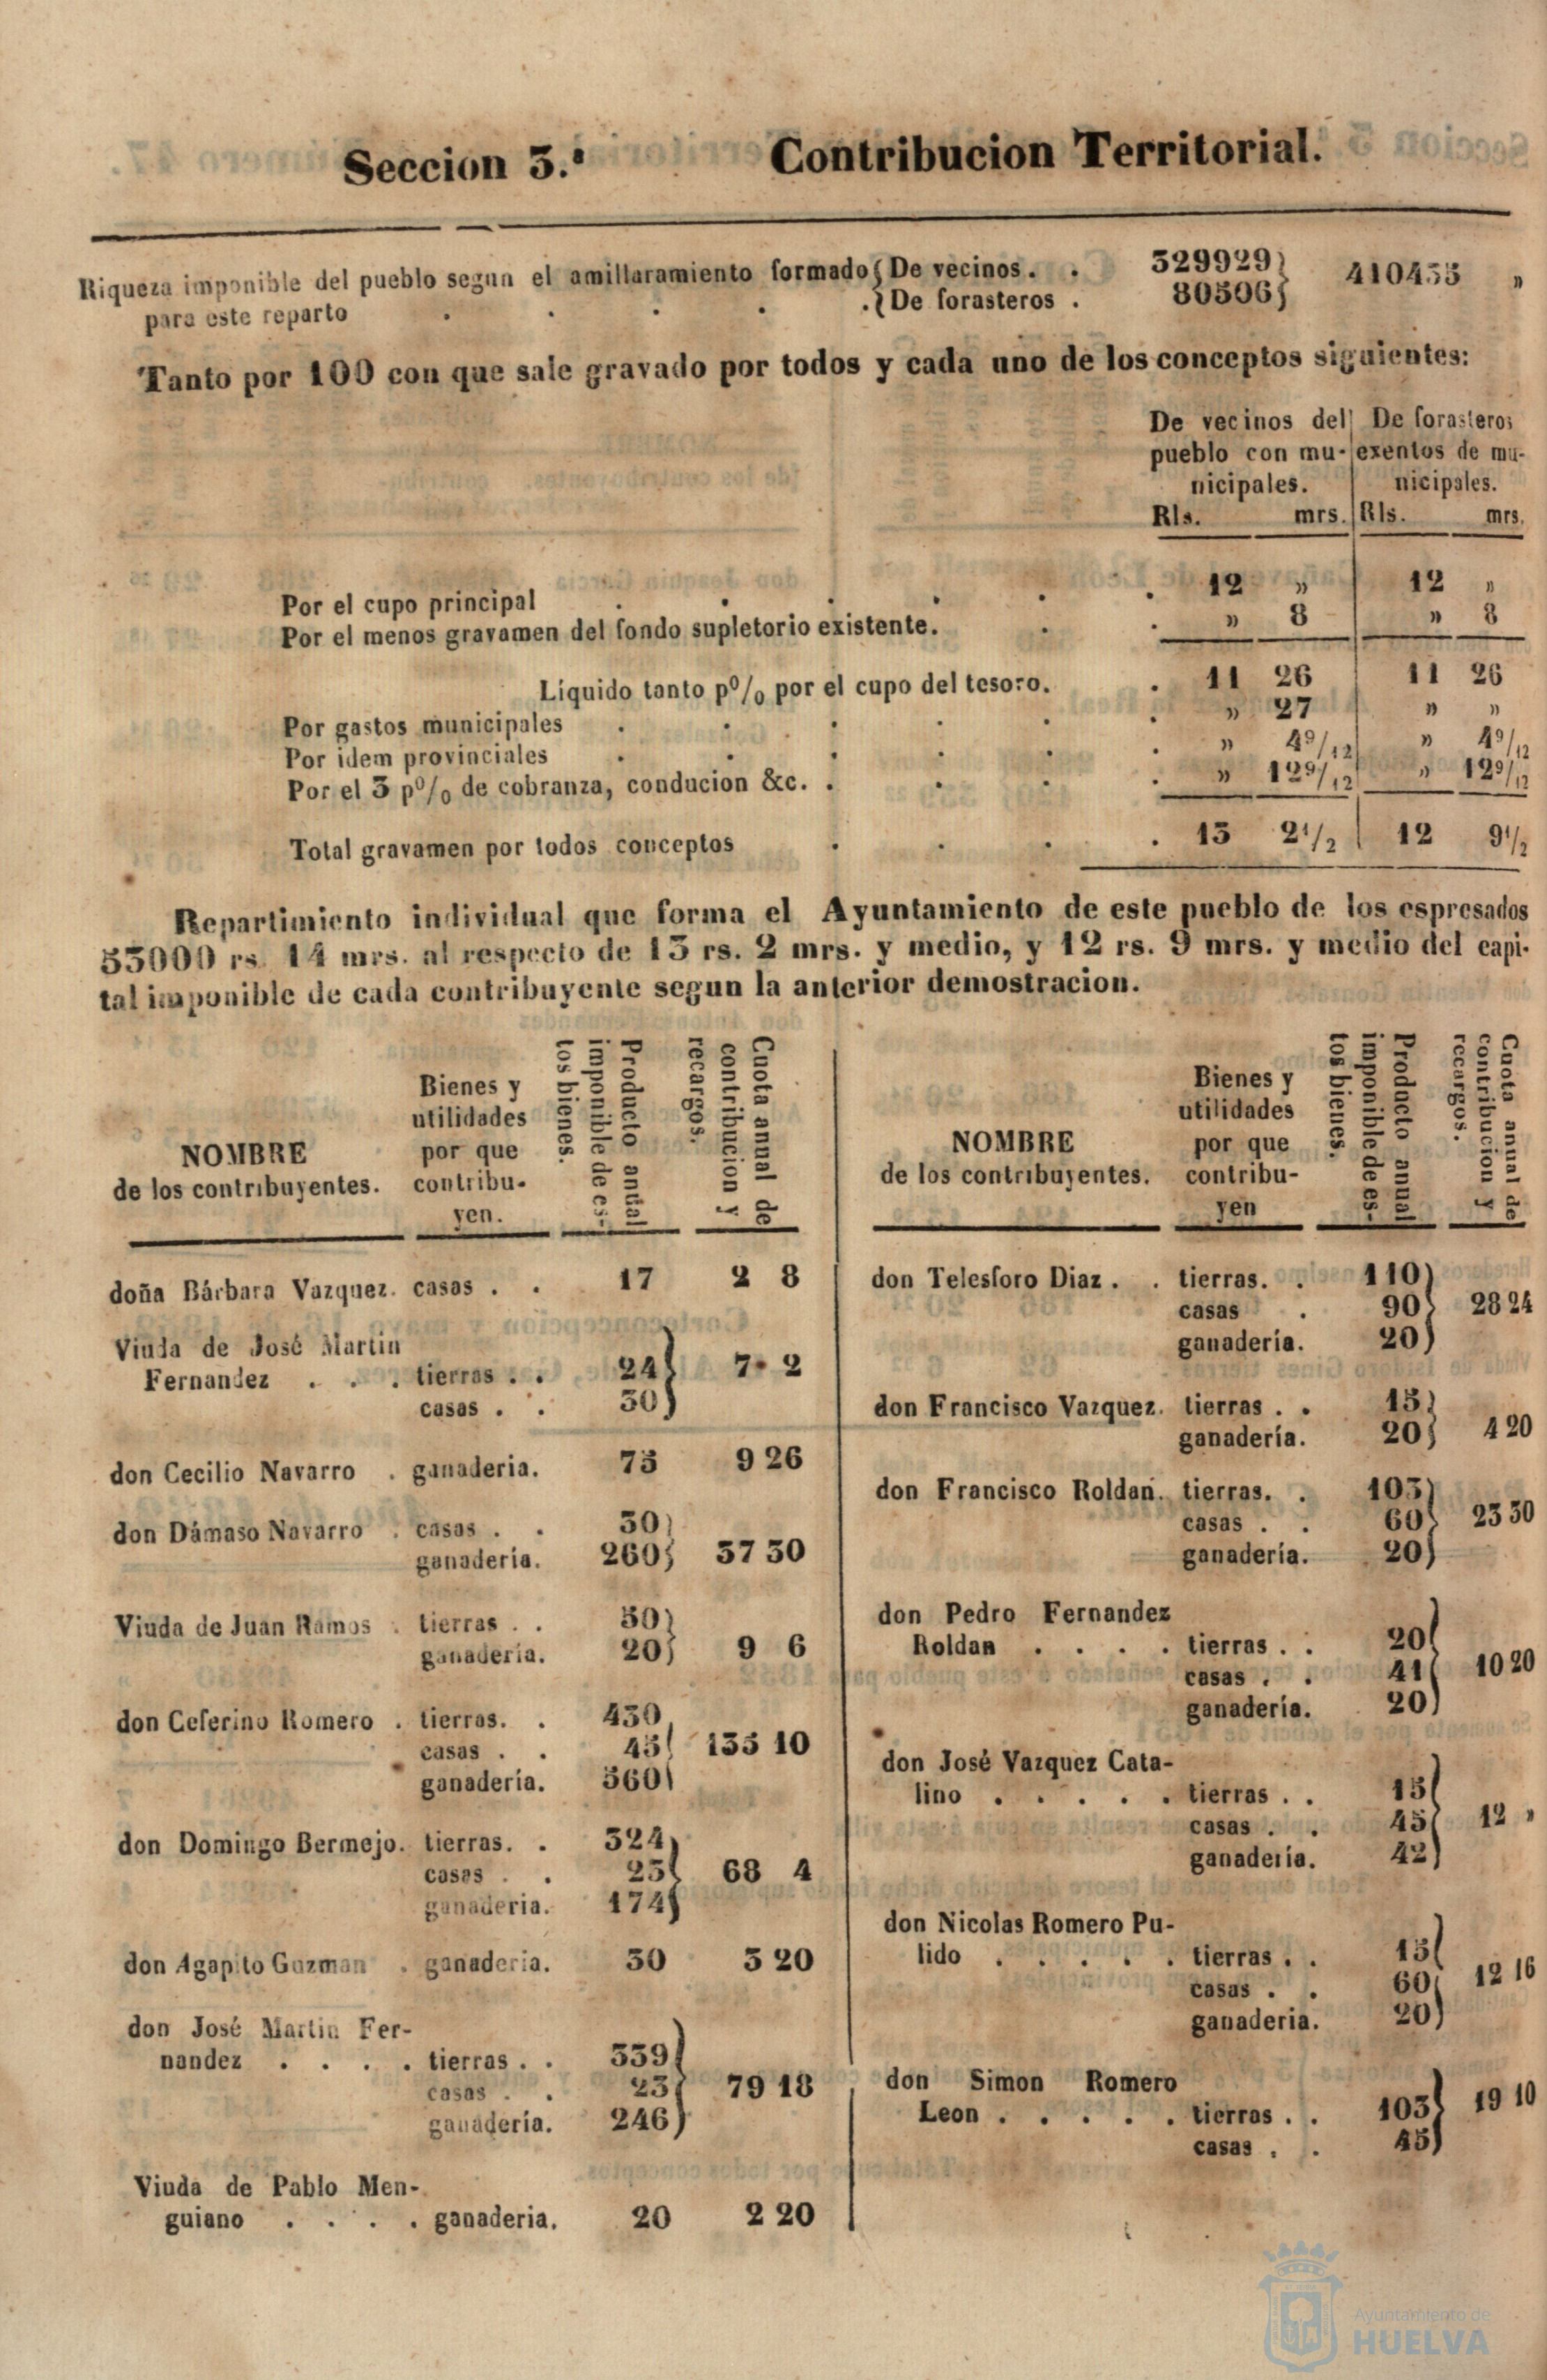 Seccion 3.ª Contribucion Territorial.
Riqueza imponible del pueblo segun el amillaramiento formado { De vecinos. . 329929 } 410435 »
para este reparto . . . . . { De forasteros . 80506 }
Tanto por 100 con que sale gravado por todos y cada uno de los conceptos siguientes:
De vecinos del | De forasteros
pueblo con mu- | exentos de mu-
nicipales. | nicipales.
Rls. mrs. | Rls. mrs.
Por el cupo principal . . . . . . 12 » | 12 »
Por el menos gravamen del fondo supletorio existente. . . » 8 | » 8
Líquido tanto pº/₀ por el cupo del tesoro. . 11 26 | 11 26
Por gastos municipales . . . . . . » 27 | » »
Por idem provinciales . . . . . . » 4⁹/₁₂ | » 4⁹/₁₂
Por el 3 pº/₀ de cobranza, conducion &c. . . . . » 12⁹/₁₂ | » 12⁹/₁₂
Total gravamen por todos conceptos . . . . 13 2¹/₂ | 12 9¹/₂
Repartimiento individual que forma el Ayuntamiento de este pueblo de los espresados
53000 rs. 14 mrs. al respecto de 13 rs. 2 mrs. y medio, y 12 rs. 9 mrs. y medio del capi-
tal imponible de cada contribuyente segun la anterior demostracion.
NOMBRE
de los contribuyentes.
Bienes y
utilidades
por que
contribu-
yen.
Producto anual
imponible de es-
tos bienes.
Cuota anual de
contribucion y
recargos.
doña Bárbara Vazquez. casas . . 17 2 8
Viuda de José Martin
Fernandez . . . tierras . . 24 } 7 2
casas . . 30 }
don Cecilio Navarro . ganaderia. 75 9 26
don Dámaso Navarro . casas . . 30 }
ganadería. 260 } 37 30
Viuda de Juan Ramos . tierras . . 50 }
ganadería. 20 } 9 6
don Ceferino Romero . tierras. . 430
casas . . 45 } 135 10
ganadería. 560 }
don Domingo Bermejo. tierras. . 324
casas . . 23 } 68 4
ganaderia. 174 }
don Agapito Guzman . ganaderia. 30 3 20
don José Martin Fer-
nandez . . . . tierras . . 339 }
casas . . 23 } 79 18
ganadería. 246 }
Viuda de Pablo Men-
guiano . . . . ganaderia. 20 2 20
NOMBRE
de los contribuyentes.
Bienes y
utilidades
por que
contribu-
yen
Producto anual
imponible de es-
tos bienes.
Cuota anual de
contribucion y
recargos.
don Telesforo Diaz . . tierras. . 110 }
casas . 90 } 28 24
ganadería. 20 }
don Francisco Vazquez. tierras . . 15 }
ganadería. 20 } 4 20
don Francisco Roldan. tierras. . 103 }
casas . . 60 } 23 30
ganadería. 20 }
don Pedro Fernandez
Roldan . . . . tierras . . 20 }
casas . . 41 } 10 20
ganadería. 20 }
don José Vazquez Cata-
lino . . . . . tierras . . 15 }
casas . . 45 } 12 »
ganadería. 42 }
don Nicolas Romero Pu-
lido . . . . . tierras . . 15 }
casas . . 60 } 12 16
ganaderia. 20 }
don Simon Romero
Leon . . . . . tierras . . 103 } 19 10
casas . . 45 }
Ayuntamiento de
HUELVA